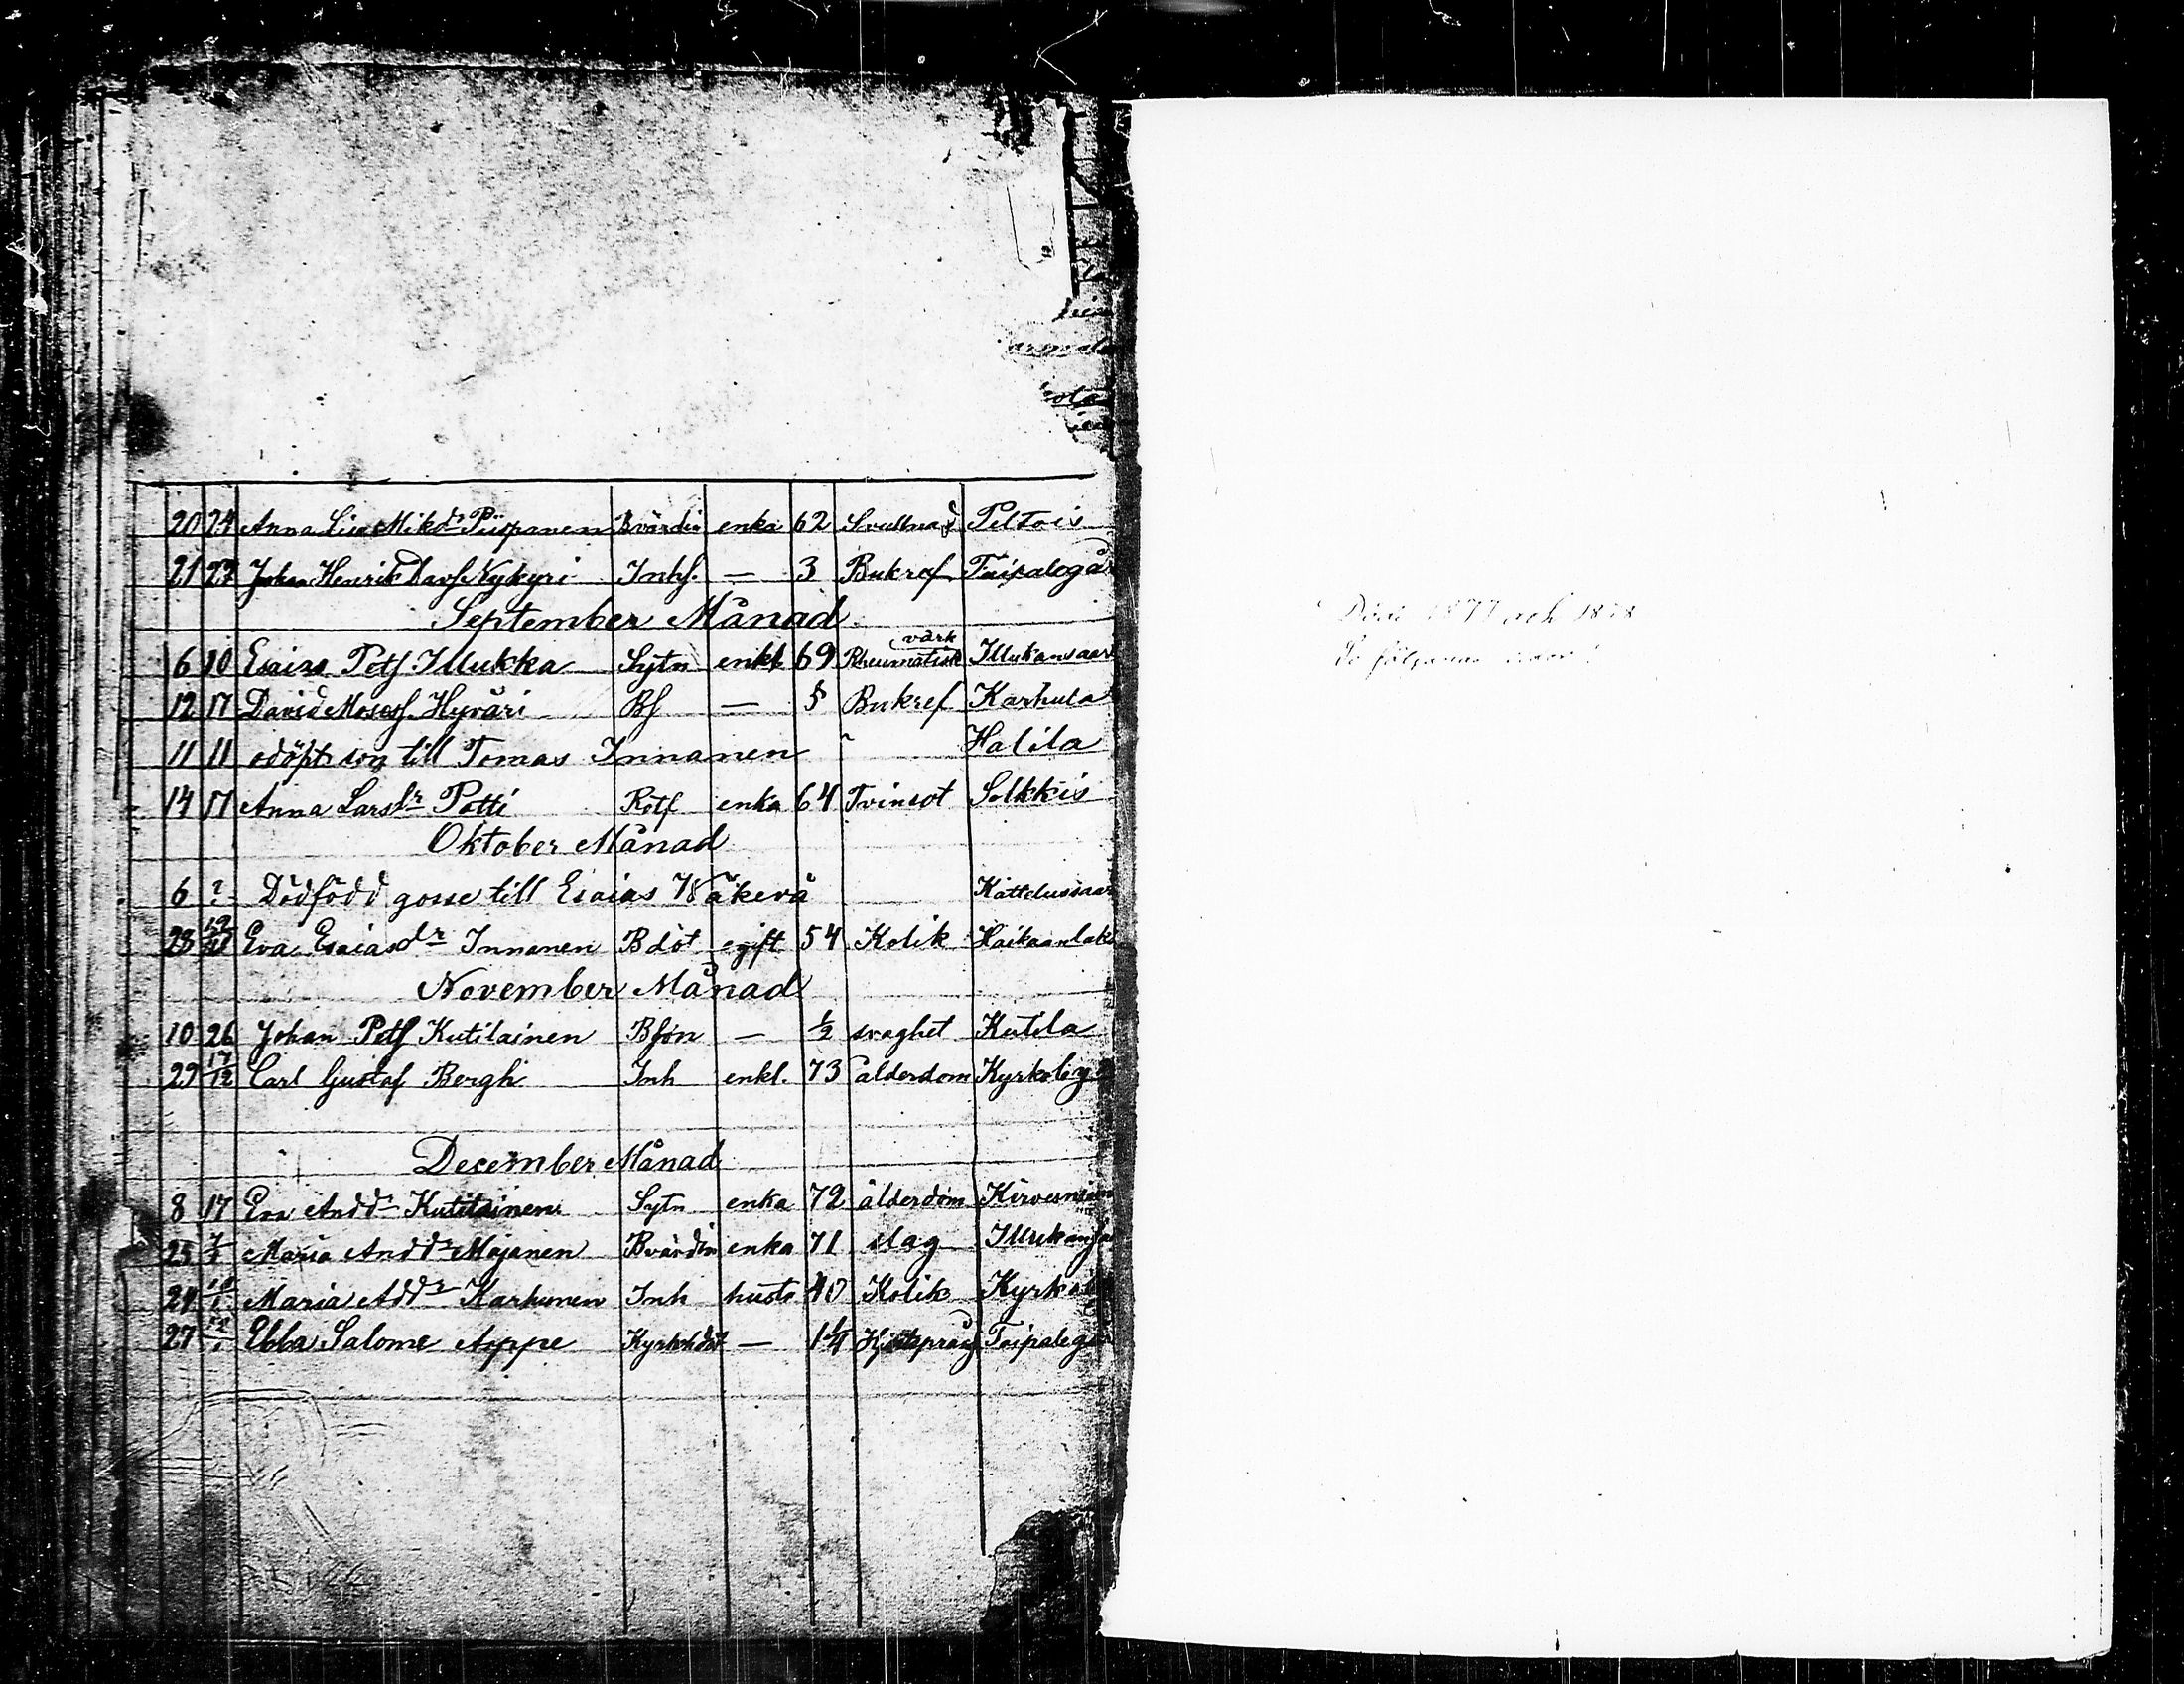 20 24 Anna Lisa Mikdr Piispanen Bvärdin enka 62 Svullnad Peltois
21 27 Johan Henrik Davs Nykyri Inhs. — 3 Bukref Taipalegår
September Månad
6 10 Esaias Pets Illukka Sytn enkl 69 Rheumatisk värk Illukansaari
12 17 David Moses. Hyväri Bs — Bukref Karhula
11 11 odöpt son till Tomas Innanen Halila
14 17 Anna Larsdr Potti Rotf enka 64 Tvinsot Solkkis
Oktober Månad
6 ? Dödfödd gosse till Esaias Wäkevä
23 Eva Esaiasdr Innanen Bdöt egift 54 Kolik
November Månad
10 26 Johan Pets Kutilainen Bson — 1/2 svaghet Kutila
29 17/12 Carl Gustaf Bergh Inh enkl. 73 ålderdom Kyrkoby
December Månad
8 17 Eva Anddr Kutilainen Sytn enka 72 ålderdom
25 Maria Anddr Majanen Bvärdin enka 71 slag
24 Maria Addr Karhunen Inh hustr 40 Kolik
27 Ebba Salome Aeppe — 1 1/4 Taipalegår
1877 och 1878